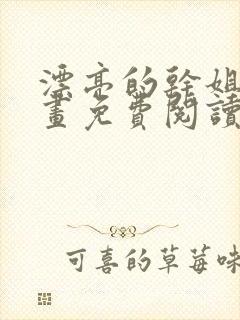 漂亮的幹姐
畫免費閱讀
可喜的草莓味